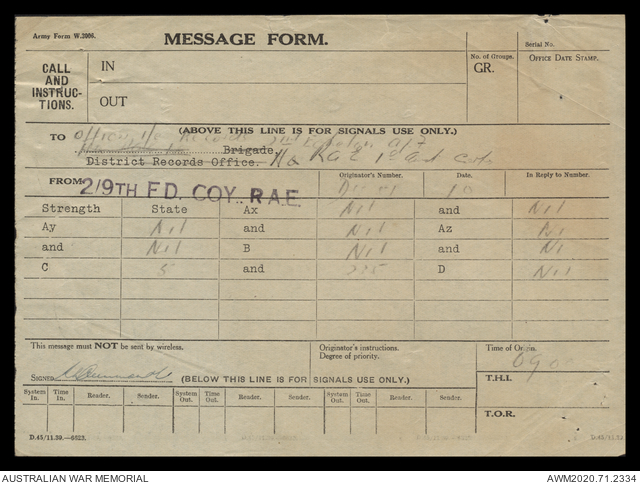 Army Form W.2006.
MESSAGE FORM.
Serial No.
CALL AND INSTRUC-TIONS.
IN
OUT
No. of Groups.
GR.
OFFICE DATE STAMP.
(ABOVE THIS LINE IS FOR SIGNALS USE ONLY.)
TO Records 2nd Echelon
Brigade.
District Records Office. HQ RAE 1st Aust Corps
FROM 2/9TH FD. COY. R.A.E.
Originator's Number.
Date.
In Reply to Number.
Strength State Ax Nil and Nil
Ay Nil and Nil Az Nil
and Nil B Nil and Nil
C 5 and D Nil
This message must NOT be sent by wireless.
Originator's instructions.
Degree of priority.
Time of Origin.
SIGNED
(BELOW THIS LINE IS FOR SIGNALS USE ONLY.)
T.H.I.
System In. Time In. Reader. Sender. System Out. Time Out. Reader. Sender. System Out. Time Out. Reader. Sender.
T.O.R.
AUSTRALIAN WAR MEMORIAL
AWM2020.71.2334